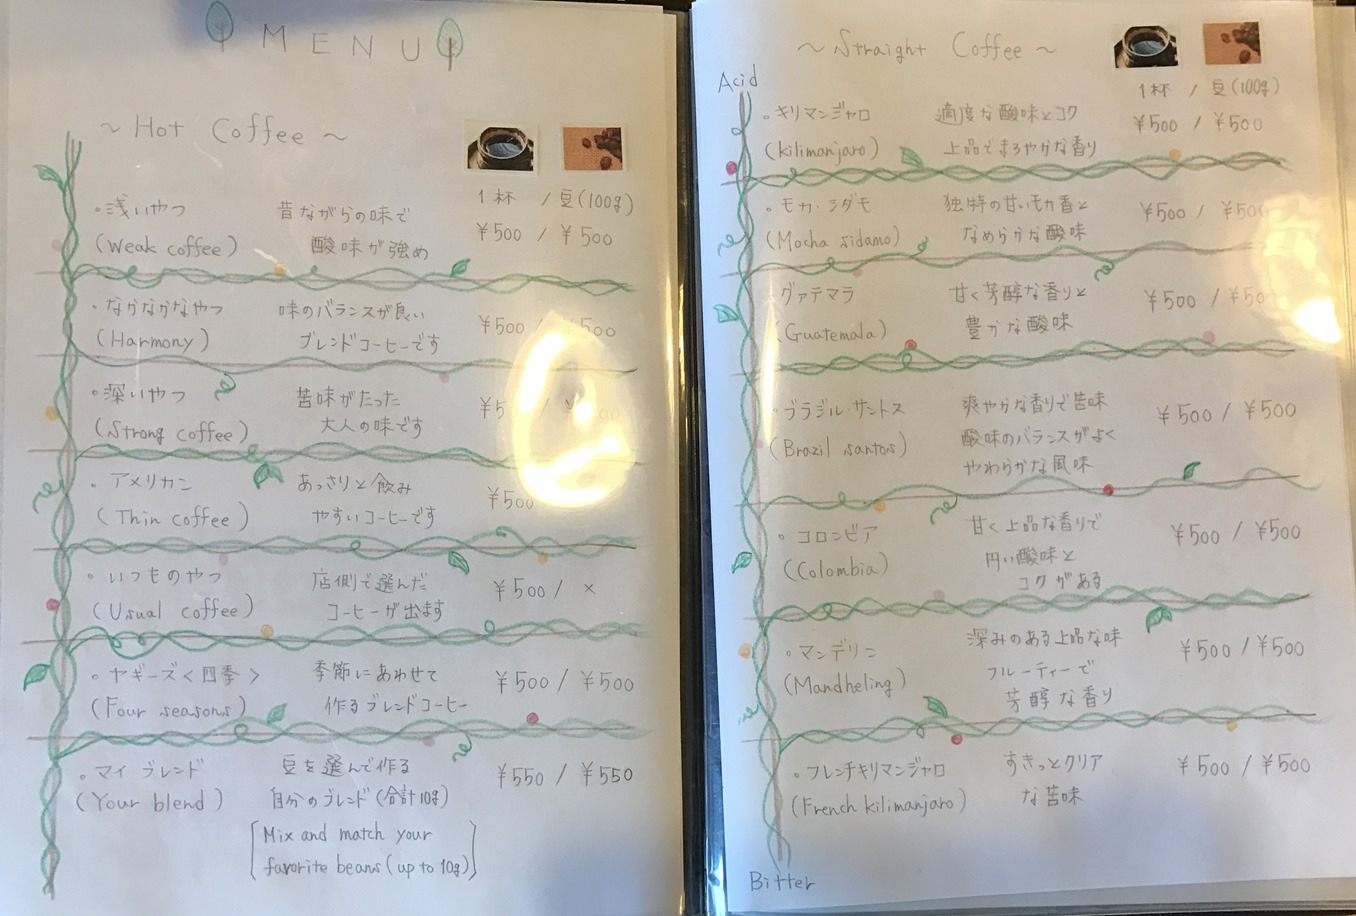 MENU
~ Hot Coffee ~
1杯 / 豆(100g)
・浅いやつ 昔ながらの味で ¥500 / ¥500
(Weak coffee) 酸味が強め
・なかなかなやつ 味のバランスが良い ¥500 / ¥500
(Harmony) ブレンドコーヒーです
・深いやつ 苦味がたった
(Strong coffee) 大人の味です
・アメリカン あっさりと飲み ¥500
(Thin coffee) やすいコーヒーです
・いつものやつ 店側で選んだ ¥500 / ×
(Usual coffee) コーヒーが出ます
・ヤギーズ<四季> 季節にあわせて ¥500 / ¥500
(Four seasons) 作るブレンドコーヒー
・マイ ブレンド 豆を選んで作る ¥550 / ¥550
(Your blend) 自分のブレンド(合計10g)
[Mix and match your
favorite beans (up to 10g)]
~ Straight Coffee ~
Acid
1杯 / 豆(100g)
・キリマンジャロ 適度な酸味とコク ¥500 / ¥500
(kilimanjaro) 上品でまろやかな香り
・モカ・シダモ 独特の甘いモカ香と ¥500 / ¥500
(Mocha sidamo) なめらかな酸味
グァテマラ 甘く芳醇な香りと ¥500 / ¥50
(Guatemala) 豊かな酸味
・ブラジル・サントス 爽やかな香りで苦味 ¥500 / ¥500
(Brazil santos) 酸味のバランスがよく
やわらかな風味
・コロンビア 甘く上品な香りで ¥500 / ¥500
(Colombia) 円い酸味と
コクがある
・マンデリン 深みのある上品な味 ¥500 / ¥500
(Mandheling) フルーティーで
芳醇な香り
・フレンチキリマンジャロ すきっとクリア ¥500 / ¥500
(French kilimanjaro) な苦味
Bitter